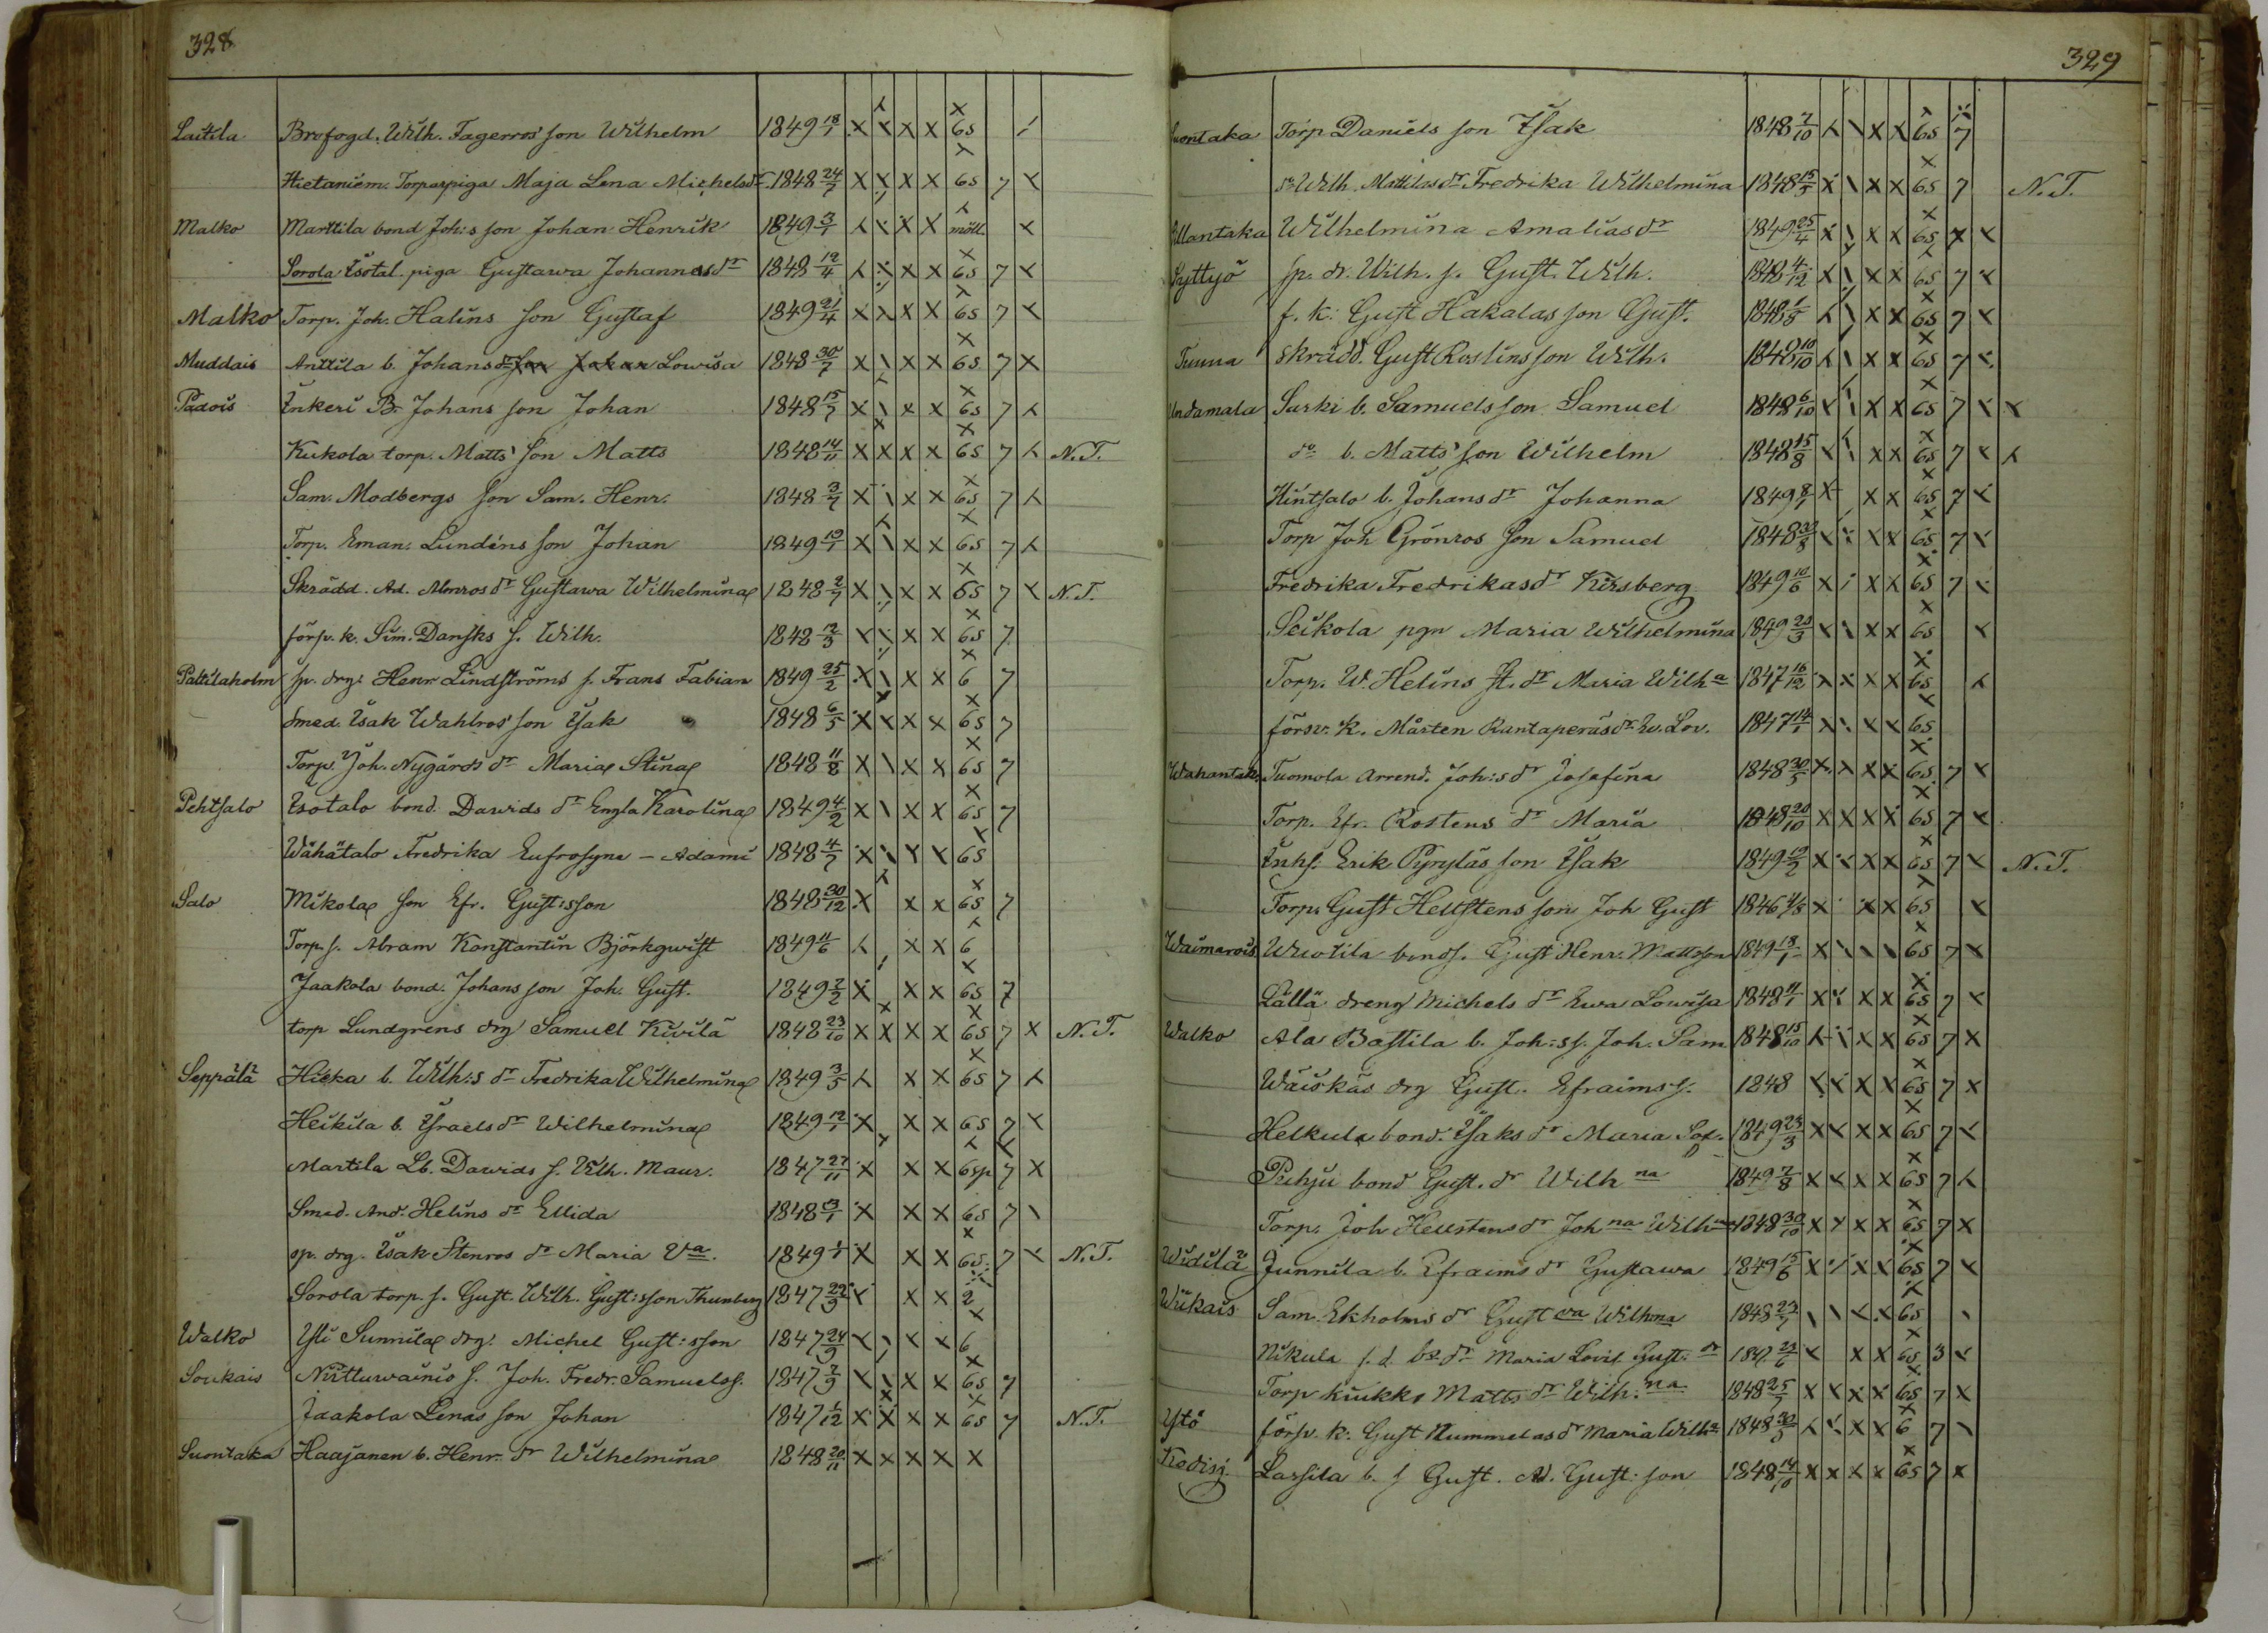 328
Laitila Brofogd. Wilh. Fagerros' son Wilhelm 1849 18/1 x x x x 65
Hietaniem. Torparpiga Maja Lena Michelsdr 1848 24/7 x x x x 65 7 x
Malko Marttila bond Joh:s son Johan Henrik 1849 3/1 x x x möll. x
Sorola Isotal. piga Gustawa Johannesdr 1848 19/4 x x x 65 7 x
Malko Torp. Joh. Halins son Gustaf 1849 21/4 x x x x 65 7 x
Muddais Anttila b. Johans dr Lowisa 1848 30/7 x \ x x 65 7 x
Padois Inkeri B. Johans son Johan 1848 15/7 x \ x x 65 7 x
Kukola torp. Matts' son Matts 1848 14/11 x x x x 65 7 x N.T.
Sam. Modbergs son Sam. Henr. 1848 3/7 x \ x x 65 7 x
Torp. Eman. Lundéns son Johan 1849 19/1 x \ x x 65 7 x
Skrädd. Ad. Monros dr Gustawa Wilhelmina 1848 2/7 x \ x x 65 7 x N.T.
försv. k. Sim. Dansks s. Wilh. 1848 12/3 x x x 65 7
Pattilaholm sp. drg: Henr Lindströms s. Frans Fabian 1849 25/2 x \ x x 6 7
Smed. Isak Wahlros' son Isak 1848 6/5 x x x x 65 7
Torp. Joh. Nygårds dr Maria Stina 1848 11/8 x \ x x 65 7
Pehtsalo Isotalo bond. Dawids dr Engla Karolina 1849 4/2 x \ x x 65 7
Wähätalo Fredrika Eufrosyne - Adami 1848 4/7 x x x x 65
Salo Mikola son Efr. Gust:sson 1848 30/12 x x x 65 7
Torp. s. Abram Konstantin Björkqwist 1849 11/6 x x x 6
Jaakola bond. Johans son Joh. Gust. 1849 2/2 x x x 65 7
torp Lundgrens drg Samuel Kivilä 1848 23/10 x x x x 65 7 x N.T.
Seppälä Hiska b. Wilh:s dr Fredrika Wilhelmina 1849 3/5 x x x 65 7 x
Heikila b. Israels dr Wilhelmina 1849 12/1 x x x 65 7 x
Martila Lb. Dawids s. Wilh. Maur. 1847 27/11 x x x 6sp 7 x
Smed. And. Helins dr Ellida 1848 13/1 x x x 65 7 \
sp. drg. Isak Stenros dr Maria Va. 1849 x x x 65 7 x N.T.
Sorola torp. s. Gust. Wilh. Gust:sson Thunberg 1847 22/9 x x x 2
Walko Yli Sunnila drg: Michel Gust:sson 1847 24/9 x \ x x 6
Soukais Niittuwainio s. Joh. Fredr. Samuelss. 1847 2/9 x \ x x 65 7
Jaakola Lenas son Johan 1847 1/12 x x x x 65 7 N.T.
Suontaka Haajanen b. Henr. dr Wilhelmina 1848 20/11 x x x x x
329
Suontaka Torp Daniels son Isak 1848 7/10 x \ x x 65 7
do Wilh. Mattilas dr Fredrika Wilhelmina 1848 15/5 x \ x x 65 7 N.T.
Ullantaka Wilhelmina Amaliasdr 1849 25/4 x \ x x 65 x x
Syttyö sp. dr. Wilh. s. Gust. Wilh. 1848 4/12 x \ x x 65 7 x
f. k: Gust Hakalas son Gust. 1848 x \ x x 65 7 x
Tuuna Skrädd. Gust Roslins son Wilh. 1848 10/10 x \ x x 65 7 x
Undamala Surki b. Samuels son Samuel 1848 6/10 x \ x x 65 7 x x
do b. Matts' son Wilhelm 1848 15/8 x \ x x 65 7 x x
Hintsalo b. Johans dr Johanna 1849 8/1 x x x 65 7 x
Torp Joh Grönros son Samuel 1848 x x x 65 7 x
Fredrika Fredrikasdr Kirsberg 1849 10/6 x x x 65 7 x
Seikola pgn Maria Wilhelmina 1849 23/3 x \ x x 65 x
Torp. W. Helins st. dr Maria Wilha 1847 16/12 x x x x 65 x
försv. k. Mårten Rantaperäs dr Ev. Lov. 1847 14/1 x x x 65
Wahantak. Tuomola Arrend. Joh:s dr Josefina 1848 30/5 x x x x 65 7 x
Torp. Efr. Rostens dr Maria 1848 20/10 x x x x 65 7 x
Inhs. Erik Pyryläs son Isak 1849 19/2 x x x x 65 7 x N.T.
Torp. Gust Hellstens son Joh Gust 1846 x x x 65 x
Waimarois Wuotila bonds. Gust Henr. Mattsson 1849 18/1 x \ \ \ 65 7 x
Lällä dreng Michels dr Ewa Lowisa 1848 11/1 x x x x 65 7 x
Walko Ala Bastila b. Joh:s s. Joh. Sam 1848 15/10 x x x 65 7 x
Wäiskäs drg Gust. Efraims s. 1848 x x x x 65 7 x
Helkula bond. Isaks dr Maria Sof. 1849 23/3 x x x x 65 7 x
Puhju bond Gust. dr Wilh na 1849 7/8 x x x x 65 7 x
Torp. Joh Hellstens dr Joh na Wilh na 1848 30/10 x x x x 65 7 x
Widilä Junnila b. Efraims dr Gustawa 1849 15/6 x x x 65 7 x
Wiikais Sam. Ekholms dr Gust va Wilhma 1848 23/7 \ \ x x 65 \
Nikula s. d. bs. dr Maria Lovis Gust. dr 1847 23/6 x x x 65 3 x
Torp Kuikko Matts dr Wilh. na 1848 25/7 x x x x 65 7 x
Ytö försv. k. Gust Nummelas dr Maria Wilha 1848 30/5 x x x 6 7 \
Kodisj. Lassila b. s Gust. Ad. Gust:son 1848 14/10 x x x x 65 7 x